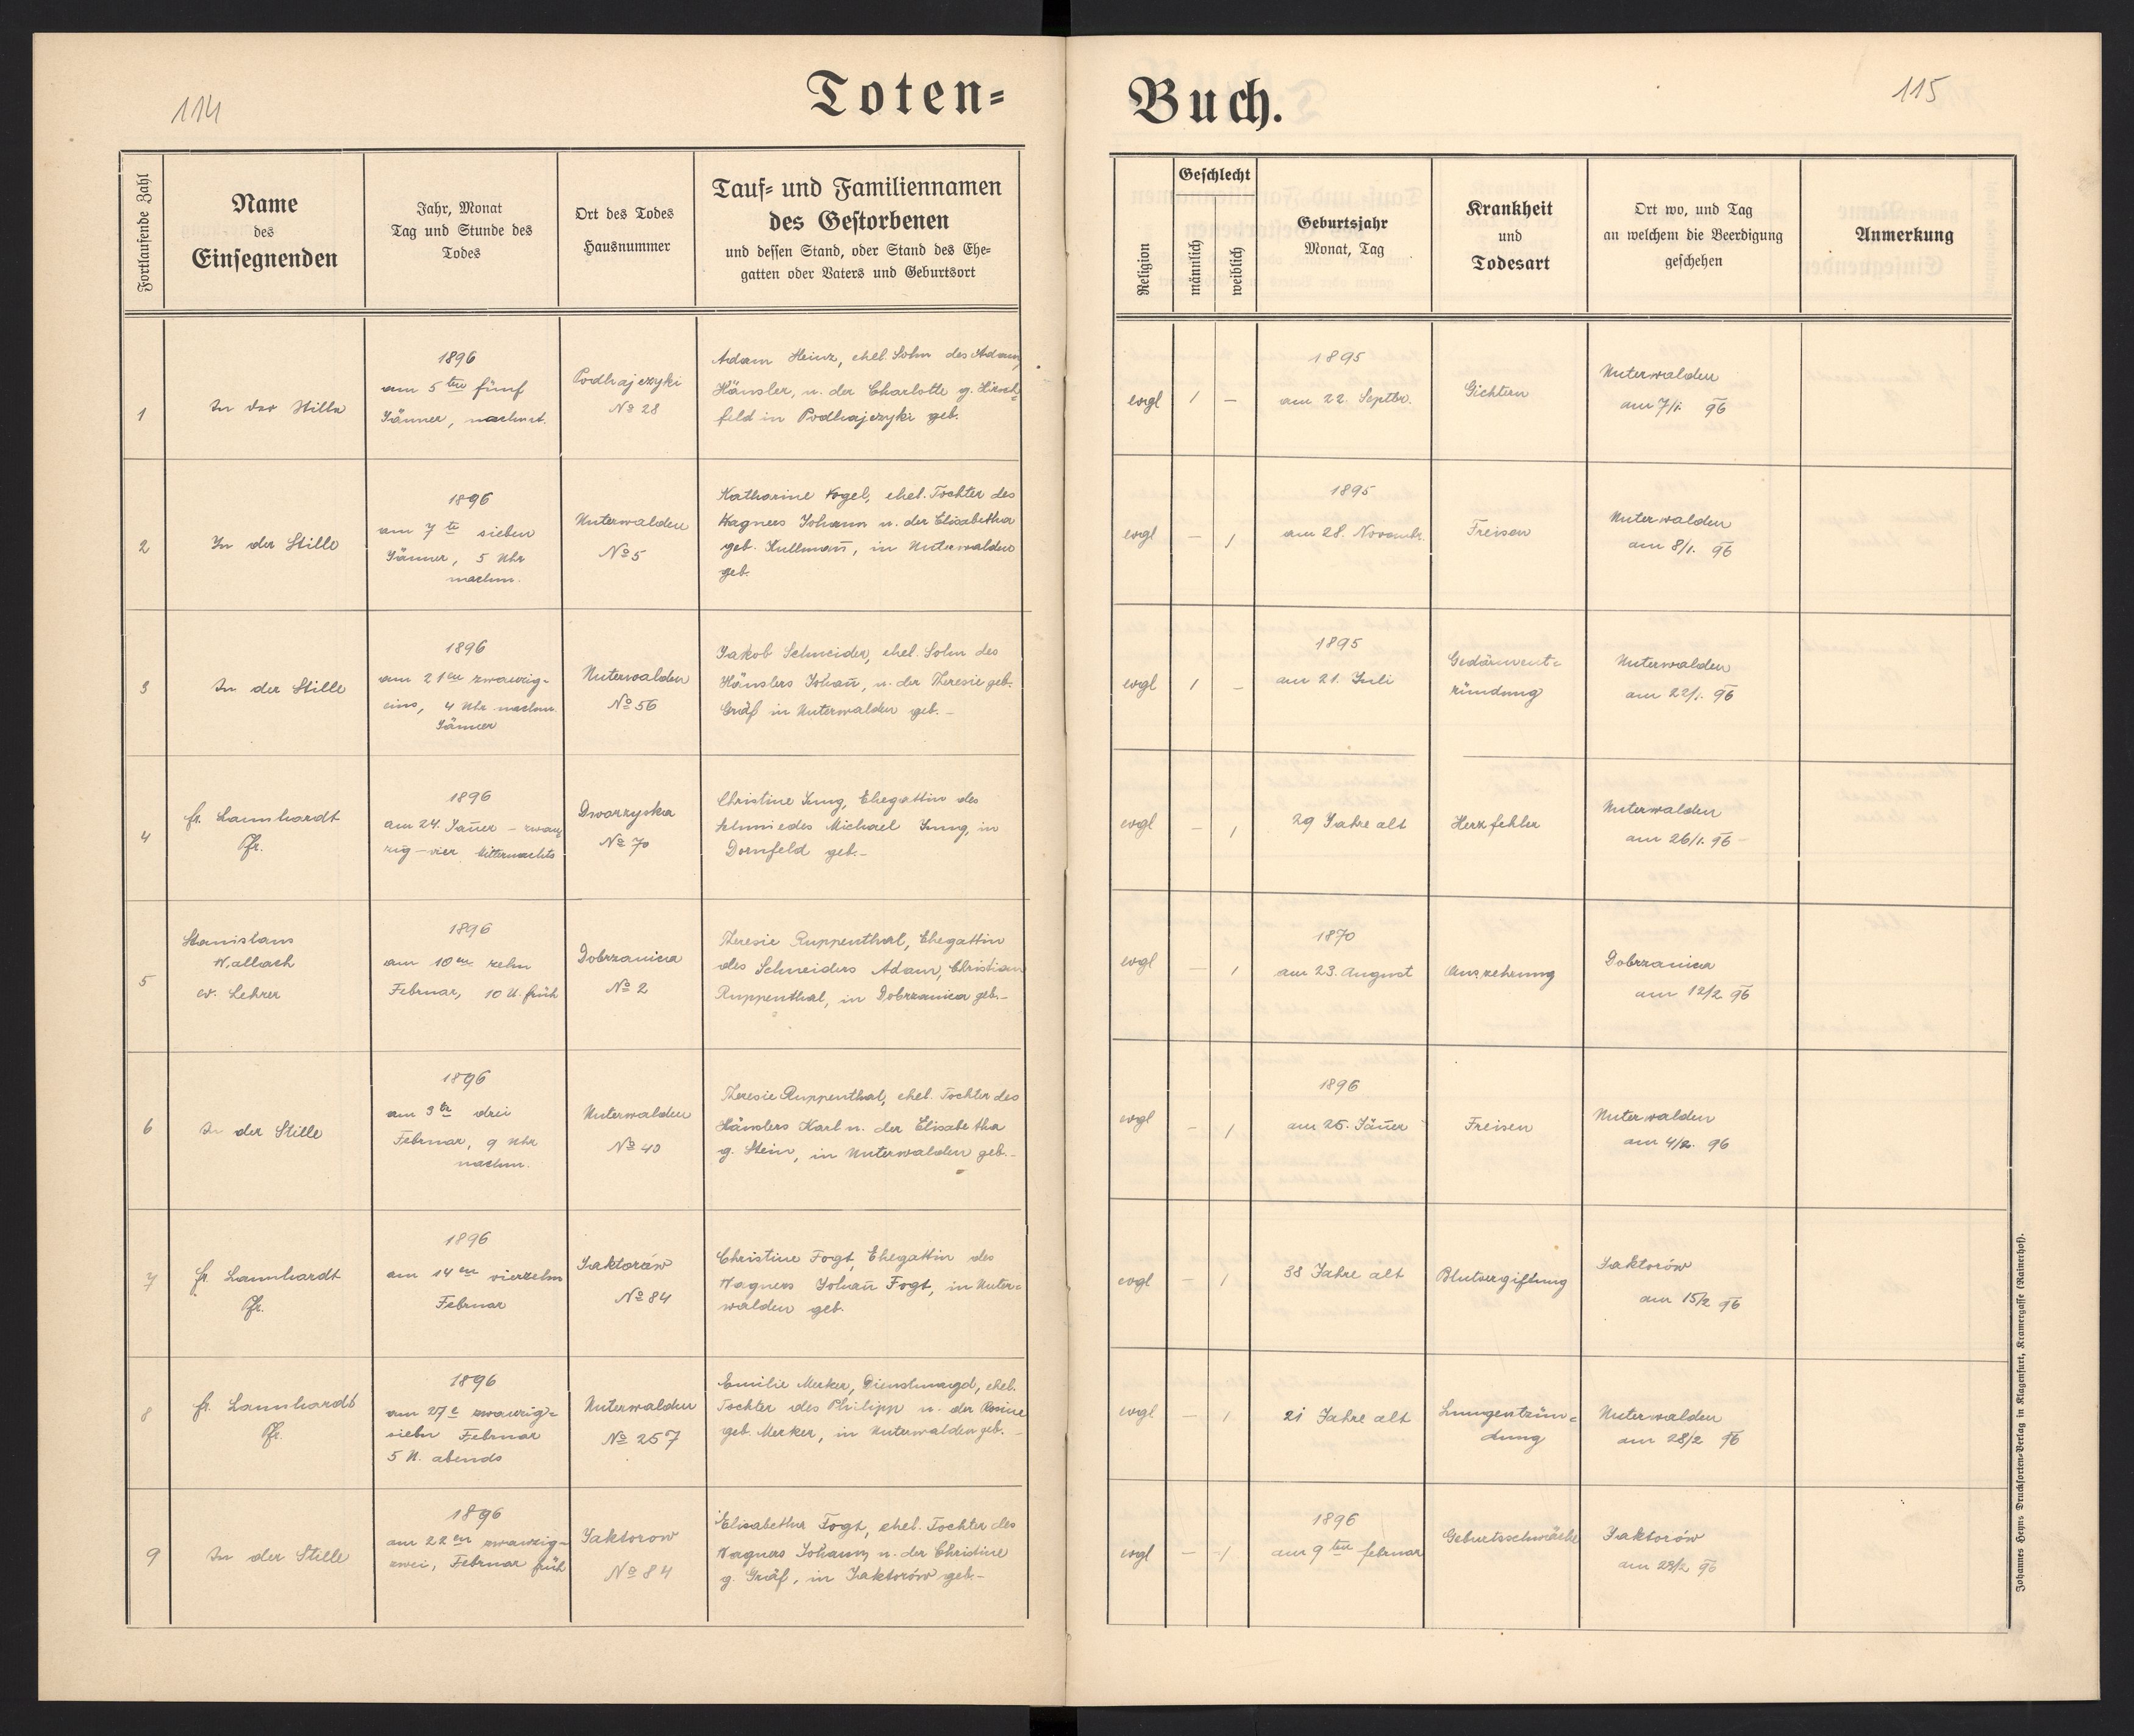 114
Toten=
Fortlaufende Zahl
Name
des
Einsegnenden
Jahr, Monat
Tag und Stunde des
Todes
Ort des Todes
Hausnummer
Tauf= und Familiennamen
des Gestorbenen
und dessen Stand, oder Stand des Ehe=
gatten oder Vaters und Geburtsort
1
In der Stille
1896
am 5ten fünf
Jänner, nachmt.
Podhajczyki
No 28
Adam Heinz, ehel. Sohn des Adam,
Häusler, u. der Charlotte g. Hirsch=
feld in Podhajczyki geb.
2
In der Stille
1896
am 7te sieben
Jänner, 5 Uhr
nachm.
Unterwalden
No 5
Katharine Vogel, ehel. Tochter des
Wagners Johann u. der Elisabetha
geb. Kullmañ, in Unterwalden
geb.
3
In der Stille
1896
am 21en zwanzig=
eins, 4 Uhr nachm.
Jänner
Unterwalden
No 56
Jakob Schneider, ehel. Sohn des
Häuslers Johañ, u. der Theresie geb.
Gräf in Unterwalden geb. –
4
fr. Lannhardt
Pfr.
1896
am 24. Jäner – zwan
zig – vier Mitternachts
Dworzyska
No 70
Christine Jung, Ehegattin des
Schmiedes Michael Jung, in
Dornfeld geb. –
5
Stanislaus
Wallach
ev. Lehrer
1896
am 10en zehn
Februar, 10 U. früh
Dobrzanica
No 2
Theresie Ruppenthal, Ehegattin
des Schneiders Adam, Christian
Ruppenthal, in Dobrzanica geb. –
6
In der Stille
1896
am 3te drei
Februar, 9 Uhr
nachm.
Unterwalden
No 40
Theresie Ruppenthal, ehel. Tochter des
Häuslers Karl u. der Elisabetha
g. Stein, in Unterwalden geb. –
7
fr. Lannhardt
Pfr.
1896
am 14en vierzehn
Februar
Jaktorów
No 84
Christine Fogt, Ehegattin des
Wagners Johañ Fogt, in Unter=
walden geb.
8
fr. Lannhardt
Pfr.
1896
am 27e zwanzig=
sieben Februar
5 U. abends
Unterwalden
No 257
Emilie Merker, Dienstmagd, ehel.
Tochter des Philipp u. der Rosine
geb. Merker, in Unterwalden geb. –
9
In der Stille
1896
am 22en zwanzig=
zwei, Februar früh
Jaktorow
No 84
Elisabetha Fogt, ehel. Tochter des
Wagners Johann u. der Christine
g. Gräf, in Jaktorów geb. –
115
Buch.
Religion
Geschlecht
männlich
weiblich
Geburtsjahr
Monat, Tag
Krankheit
und
Todesart
Ort wo, und Tag
an welchem die Beerdigung
geschehen
Anmerkung
evgl
1
–
1895
am 22. Septbr.
Gichtern
Unterwalden
am 7/1. 96
evgl
–
1
1895
am 28. Novembr.
Freisen
Unterwalden
am 8/1. 96
evgl
1
–
1895
am 21. Juli
Gedärment=
zündung
Unterwalden
am 22/1. 96
evgl
–
1
29 Jahre alt
Herzfehler
Unterwalden
am 26/1. 96 –
evgl
–
1
1870
am 23. August
Auszehrung
Dobrzanica
am 12/2 96
evgl
–
1
1896
am 26. Jäner
Freisen
Unterwalden
am 4/2. 96
evgl
–
1
38 Jahre alt
Blutvergiftung
Jaktorów
am 15/2 96
evgl
–
1
21 Jahre alt
Lungentzün=
dung
Unterwalden
am 28/2 96
evgl
–
1
1896
am 9ten februar
Geburtsschwäche
Jaktorów
am 23/2 96
Johannes Heyns Drucksorten=Verlag in Klagenfurt, Kramergasse (Rainerhof).